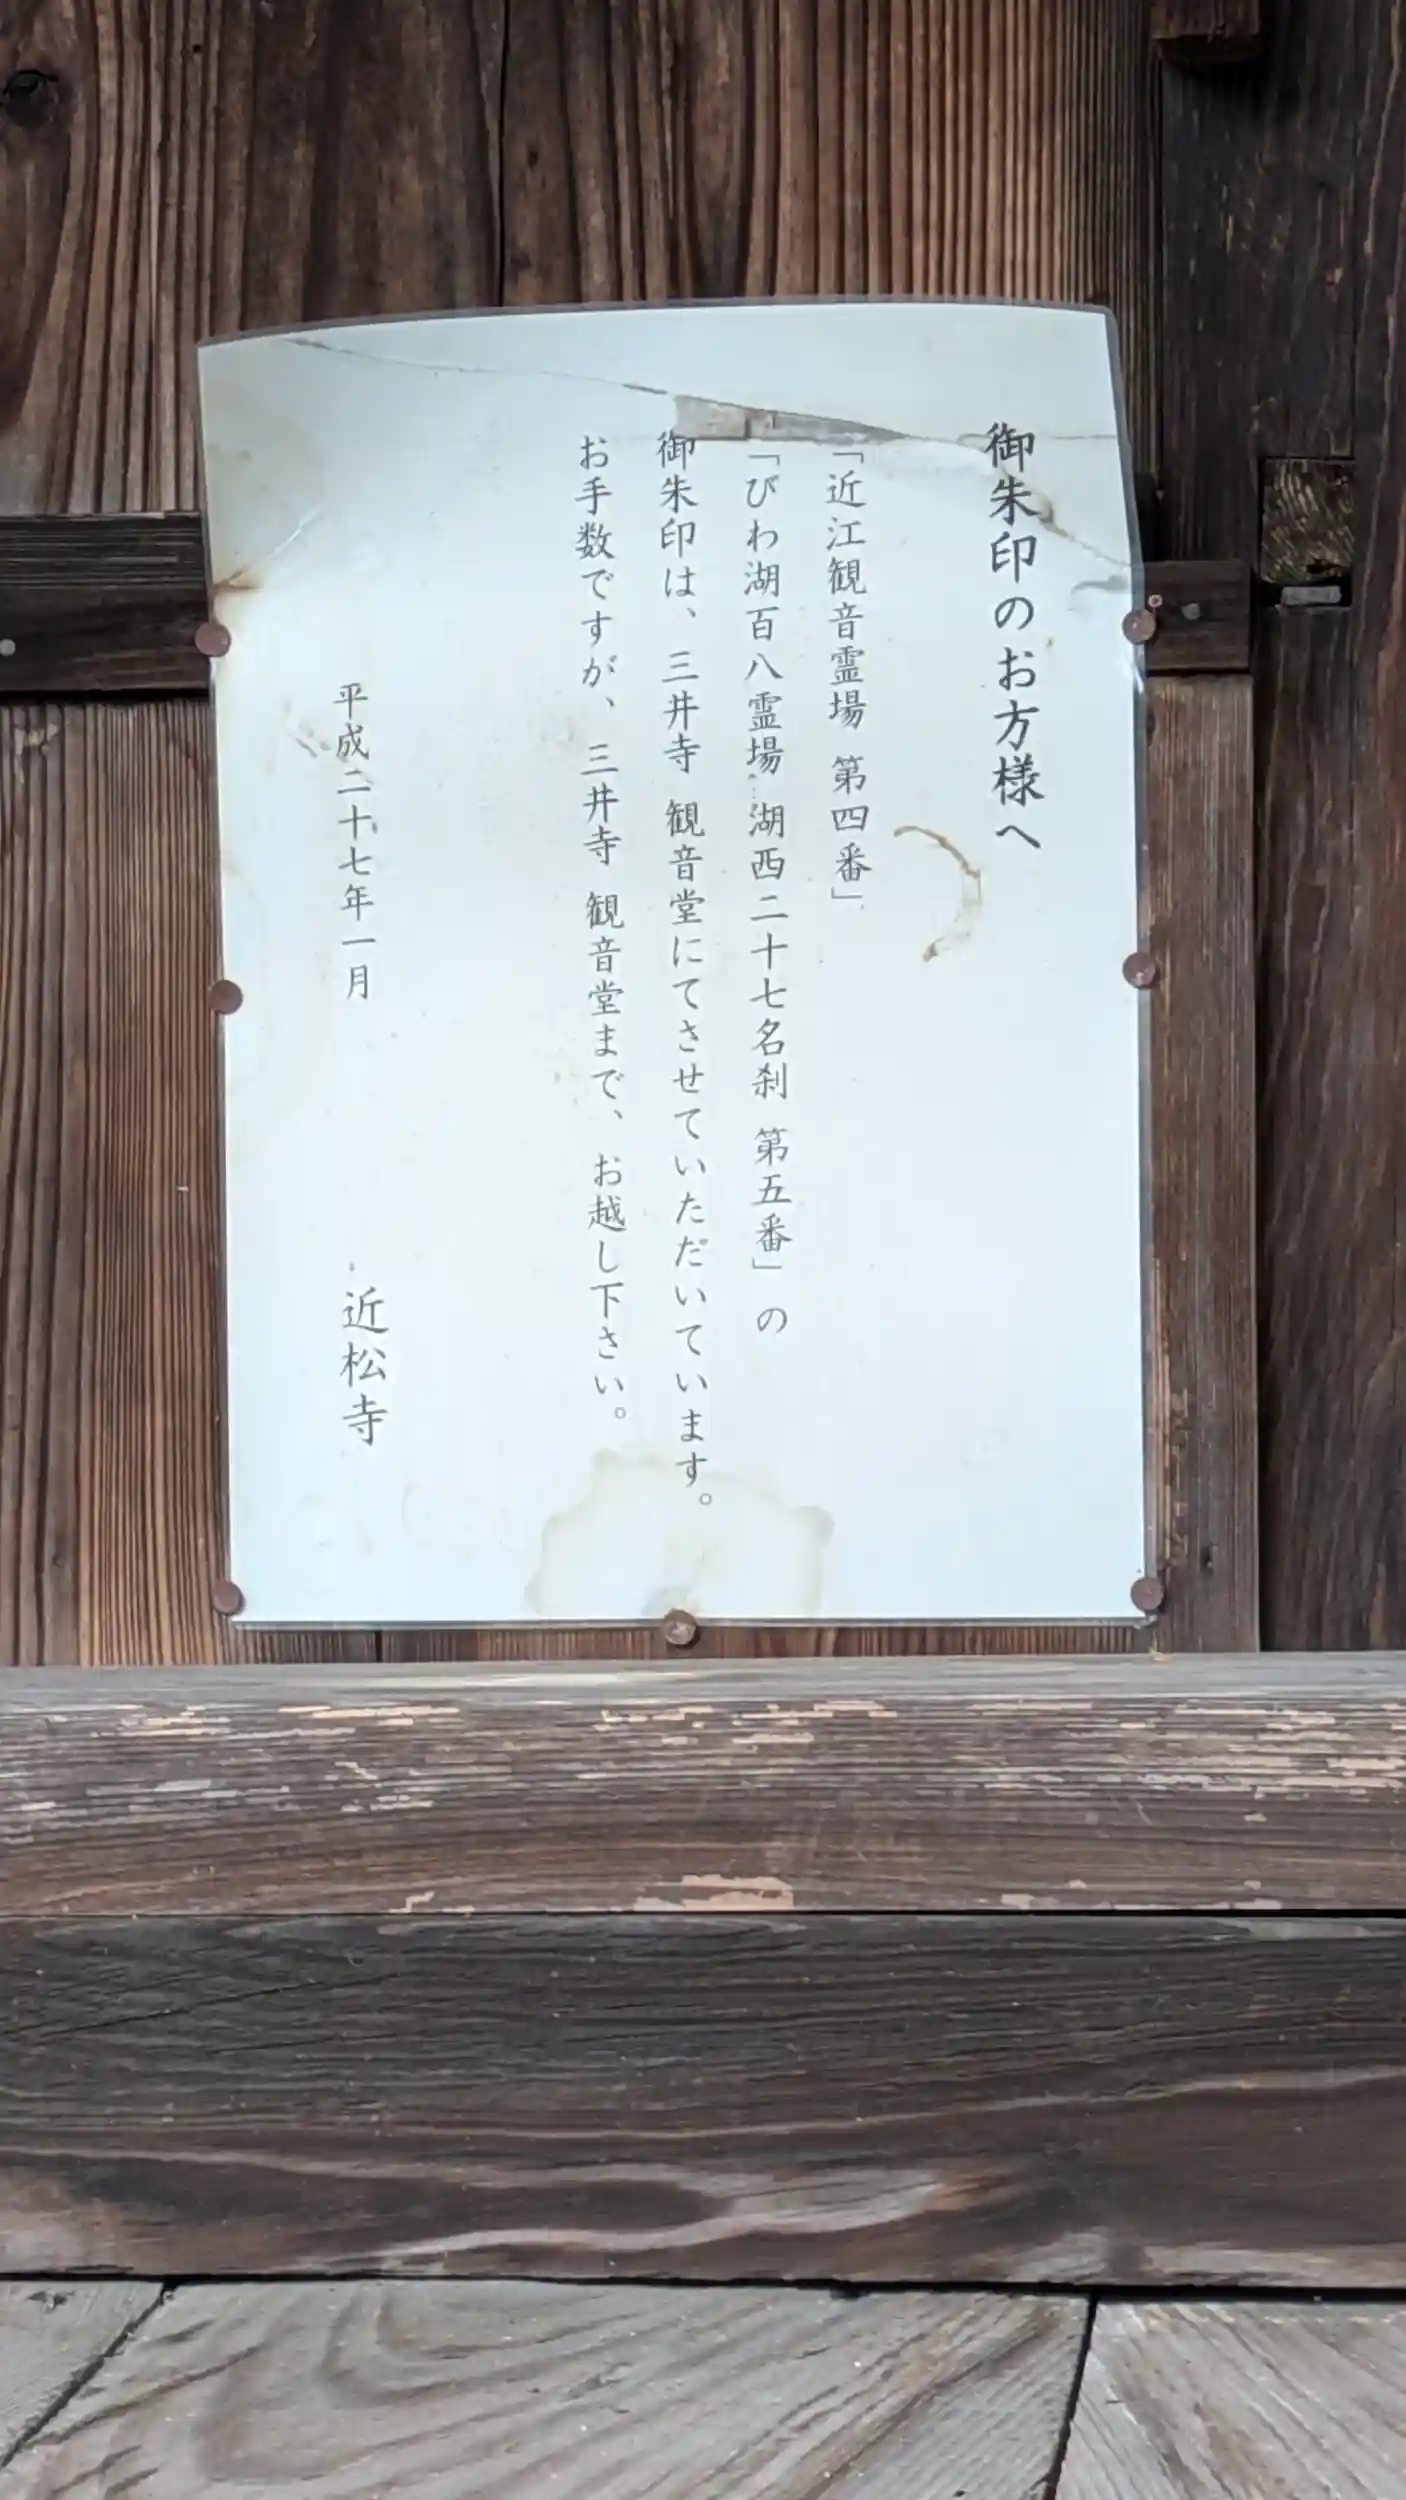 御朱印のお方様へ
「近江観音霊場 第四番」
「びわ湖百八霊場 湖西二十七名刹 第五番」の
御朱印は、三井寺 観音堂にてさせていただいています。
お手数ですが、三井寺 観音堂まで、お越し下さい。
平成二十七年一月 近松寺